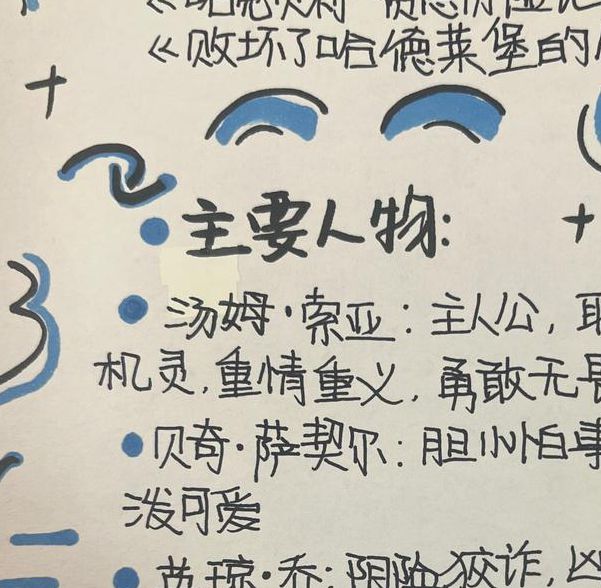 《败坏了哈德莱堡的
主要人物:
汤姆·索亚:主人公,
机灵,重情重义,勇敢无畏
贝奇·萨契尔:胆小怕事
泼可爱
苏琼·乔:阴险狡诈,凶